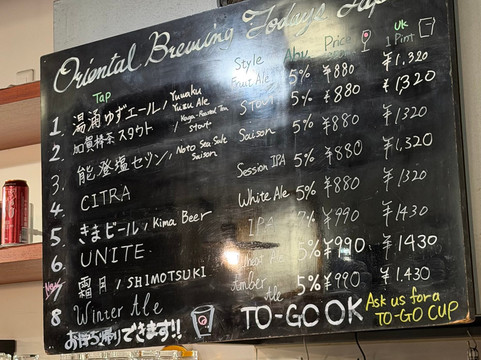 Oriental Brewing Todays Tap
Tap Style Abv Price UK 1 Pint
1. 湯涌ゆずエール / Yuwaku Yuzu Ale Fruit Ale 5% ¥880 ¥1,320
2. 加賀棒茶スタウト / Kaga-Roasted Tea Stout Stout 5% ¥880 ¥1,320
3. 能登塩セゾン / Noto Sea Salt Saison Saison 5% ¥880 ¥1,320
4. CITRA Session IPA 5% ¥880 ¥1,320
5. きまビール / Kima Beer White Ale 5% ¥880 ¥1320
6. UNITE IPA 7% ¥990 ¥1430
New 7 霜月 / SHIMOTSUKI Wheat Ale 5% ¥990 ¥1430
8 Winter Ale Amber Ale 5% ¥990 ¥1,430
お持ち帰りできます!! TO-GO OK Ask us for a TO-GO CUP